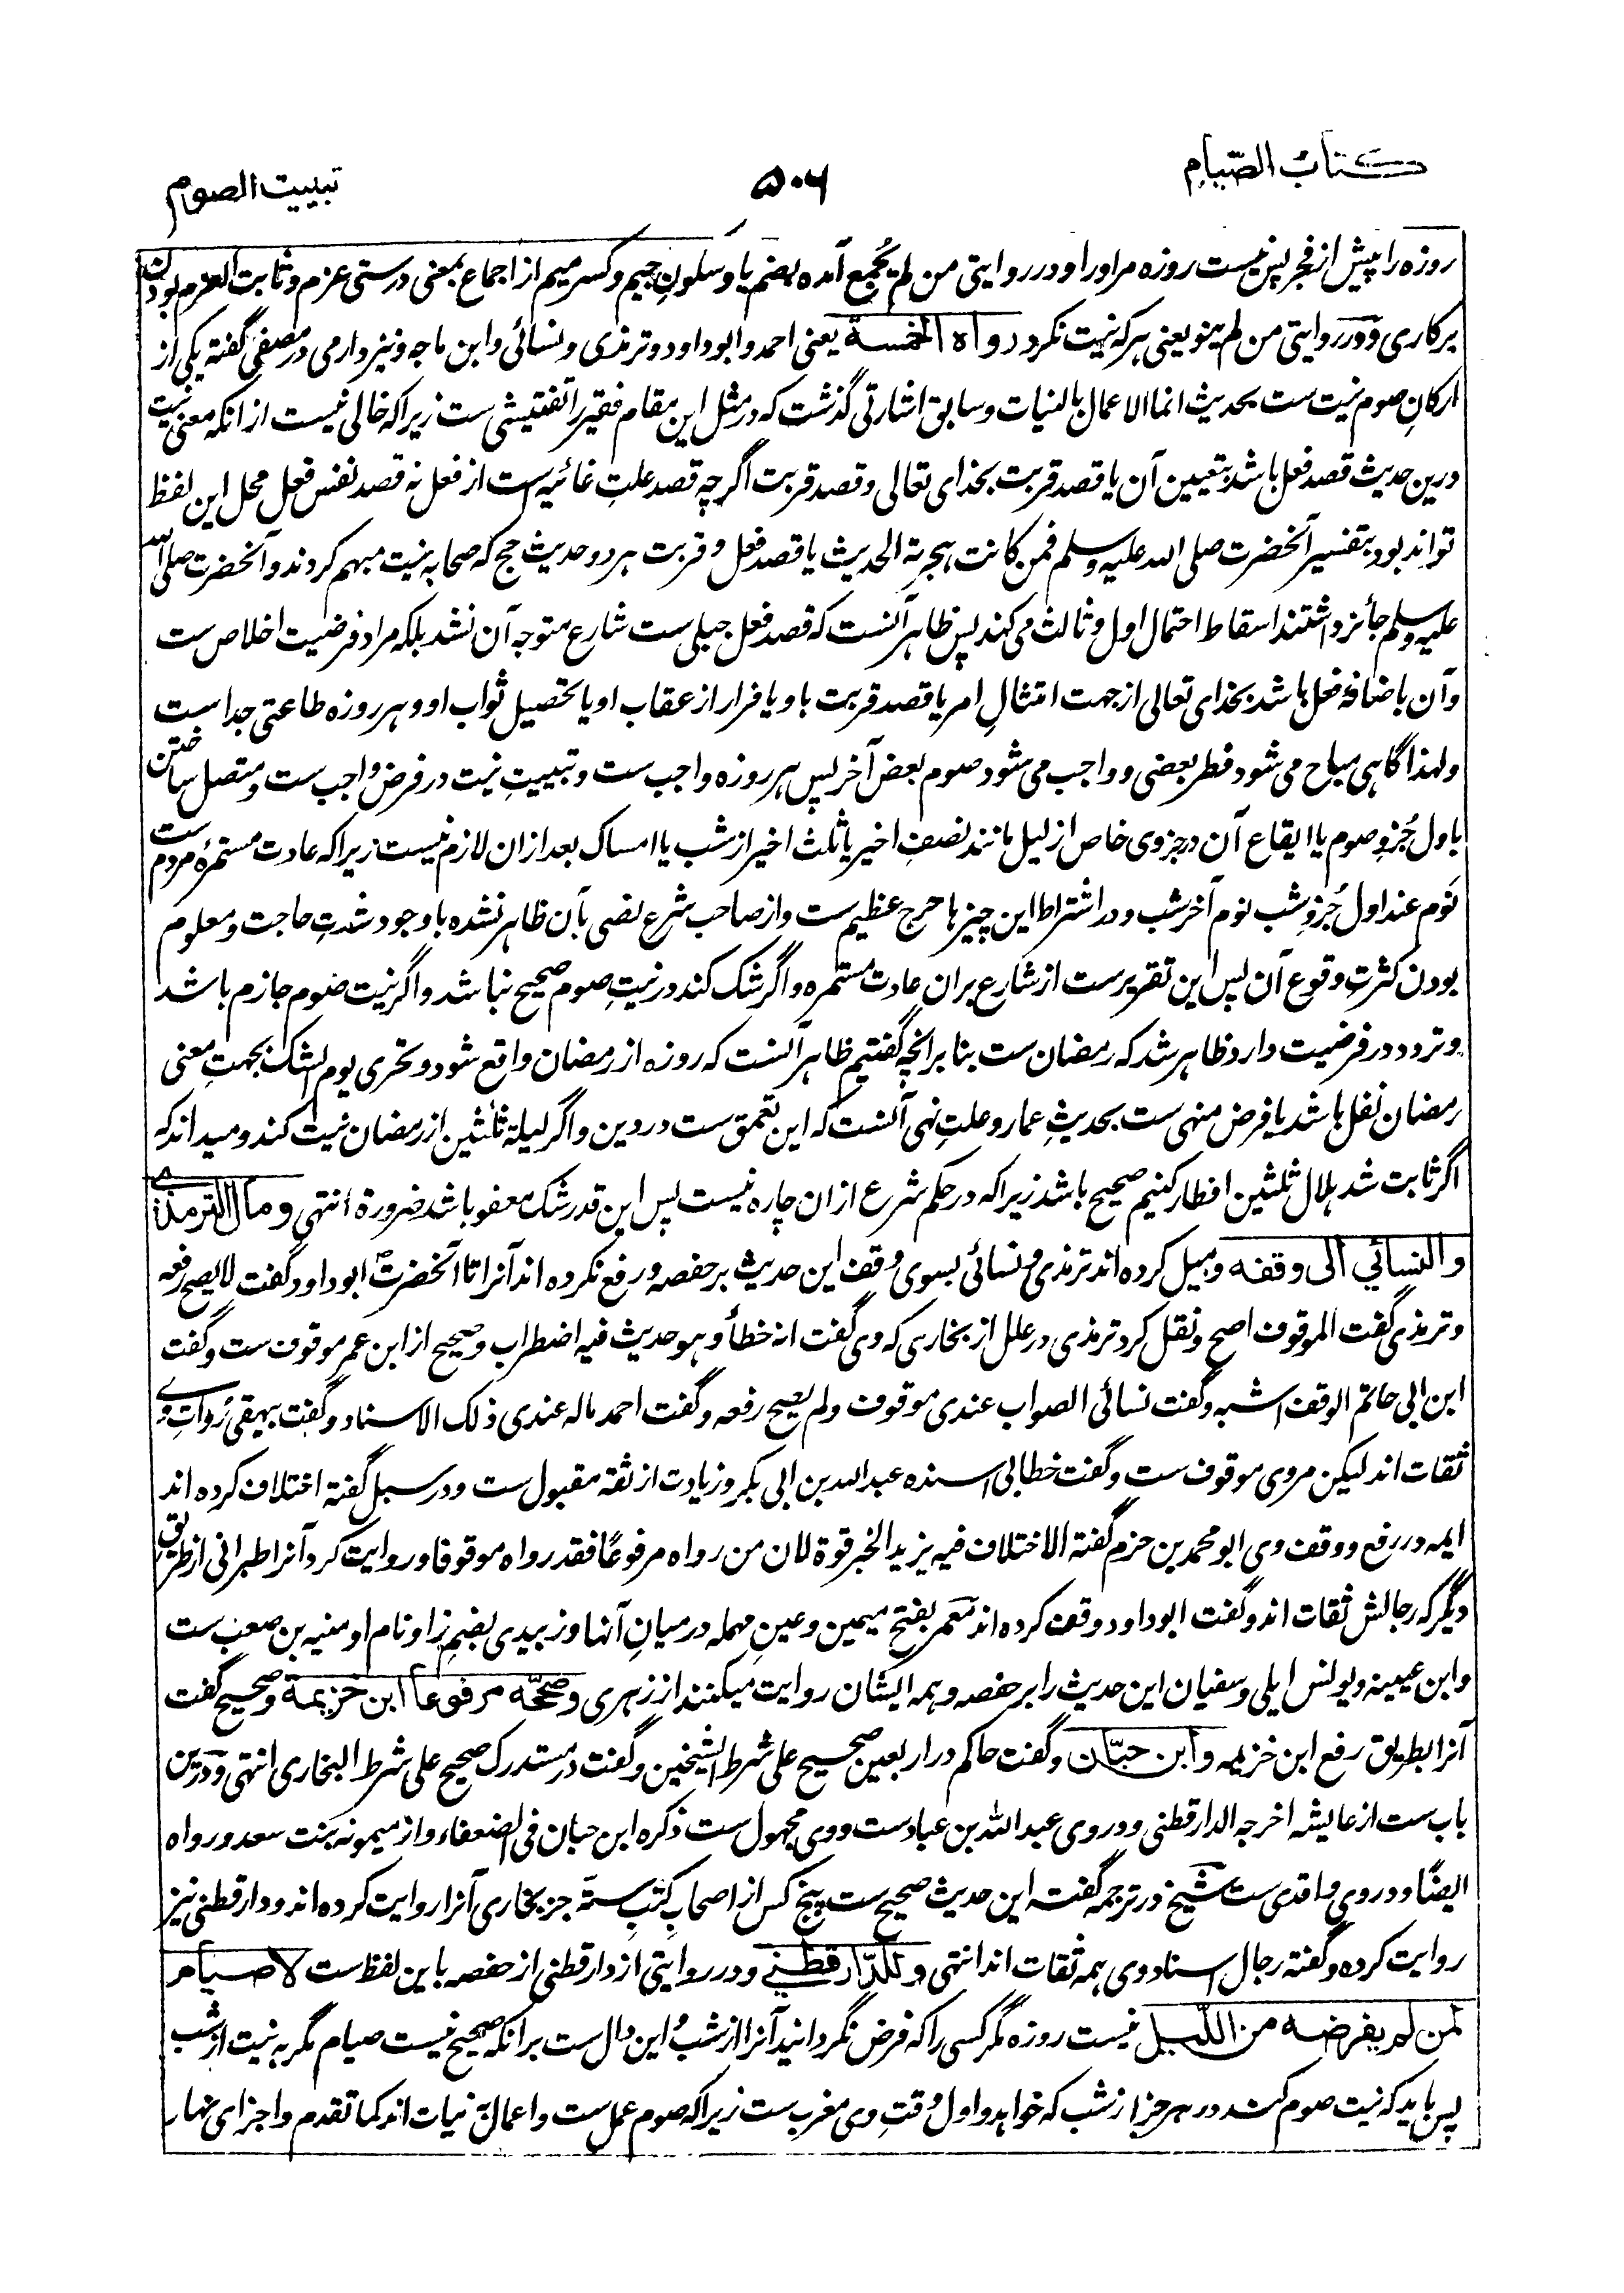 کتاب الصیام
۵۰۶
تبییت الصوم
روزه را پیش از فجر پس نیست روزه مر او را و در روایتی من لم یُجمِع آمده بضم یا و سکون جیم و کسر میم از اجماع بمعنی درستی عزم و ثابت العزم بودن
بر کاری و در روایتی من لم ینو یعنی هر که نیت نکرد رواه الخمسة یعنی احمد و ابوداود و ترمذی و نسائی و ابن ماجه و نیز دارمی در مصفی گفته یکی از
ارکانِ صوم نیت ست بحدیث انما الاعمال بالنیات و سابق اشارتی گذشت که در مثل این مقام فقیر را تفتیشی ست زیرا که خالی نیست از انکه معنی نیت
درین حدیث قصد فعل باشد بتعیین آن یا قصد قربت بخدای تعالی و قصد قربت اگر چه قصد علتِ غائیه است از فعل نه قصد نفس فعل محل این لفظ
تواند بود بتفسیر آنحضرت صلی الله علیه وسلم فمن کانت هجرته الحدیث یا قصد فعل و قربت هر دو حدیث حج که صحابه بنیت مبهم کردند و آنحضرت صلی الله
علیه وسلم جائز داشتند اسقاط احتمال اول و ثالث می کند پس ظاهر آنست که قصد فعل جبلی ست شارع متوجه آن نشد بلکه مراد فرضیت اخلاص ست
و آن باضافهٔ فعل باشد بخدای تعالی از جهت امتثالِ امر یا قصد قربت باو یا فرار از عقاب او یا تحصیل ثواب او و هر روزه طاعتی جداست
ولهذا گاهی مباح می شود فطر بعضی و واجب می شود صوم بعض آخر پس هر روزه واجب ست و تبییتِ نیت در فرض واجب ست و متصل ساختن
باول جُزوِ صوم یا ایقاع آن در جزوی خاص از لیل مانند نصفِ اخیر یا ثلث اخیر از شب یا امساک بعد ازان لازم نیست زیرا که عادت مستمرهٔ مردم ست
نَوم عند اول جُزوِ شب نوم آخر شب و در اشتراط این چیزها حرج عظیم ست و از صاحب شرع نصی بآن ظاهر نشده باوجود شدتِ حاجت و معلوم
بودن کثرتِ وقوع آن پس این تقریر ست از شارع بران عادت مستمره و اگر شک کند در نیتِ صوم صحیح نباشد و اگر نیت صوم جازم باشد
و تردد در فرضیت دارد ظاهر شد که رمضان ست بنا بر آنچه گفتیم ظاهر آنست که روزه از رمضان واقع شود و تحری یوم الشک بجهتِ معنی
رمضان نفل باشد یا فرض منهی ست بحدیثِ عمار و علتِ نهی آنست که این تعمق ست در دین و اگر لیلة ثلثین از رمضان نیت کند و میداند که
اگر ثابت شد هلال ثلثین افطار کنیم صحیح باشد زیرا که در حکم شرع ازان چاره نیست پس این قدر شک معفو باشد ضرورة انتهی ومال الترمذی
والنسائي الی وقفه و میل کرده اند ترمذی و نسائی بسوی وقف این حدیث بر حفصه و رفع نکرده اند آنرا تا آنحضرتؐ ابوداود گفت لا یصح رفعه
و ترمذی گفت الموقوف اصح و نقل کرد ترمذی در علل از بخاری که وی گفت انه خطأ و هو حدیث فیه اضطراب و صحیح از ابن عمر موقوف ست و گفت
ابن ابی حاتم الوقف اشبه و گفت نسائی الصواب عندی موقوف ولم یصح رفعه و گفت احمد ماله عندی ذلک الاسناد و گفت بیهقی رُواتِ وے
ثقات اند لیکن مروی موقوف ست و گفت خطابی اسنده عبدالله بن ابی بکر و زیادت از ثقة مقبول ست و در سبل گفته اختلاف کرده اند
ایمه در رفع و وقف وی ابو محمد بن حزم گفته الاختلاف فیه یزید الخبر قوة لان من رواه مرفوعًا فقد رواه موقوفا و روایت کرد آنرا طبرانی از طریق
دیگر که رجالش ثقات اند و گفت ابوداود وقف کرده اند معمر بفتح میمین و عینِ مهمله در میانِ آنها و زبیدی بضمِ زا و نام او منیه بن صعب ست
و ابن عیینه و یونس ایلی و سفیان این حدیث را بر حفصه و همه ایشان روایت میکنند از زهری وصححّه مرفوعا ابن خزیمة و صحیح گفت
آنرا بطریق رفع ابن خزیمه وابن حبّان و گفت حاکم در اربعین صحیح علی شرط الشیخین و گفت در مستدرک صحیح علی شرط البخاری انتهی و درین
باب ست از عایشه اخرجه الدارقطنی و در وی عبدالله بن عباد ست و وی مجهول ست ذکره ابن حبان فی الضعفاء و از میمونه بنت سعد و رواه
ایضًا و در وی واقدی ست شیخ در ترجمه گفته این حدیث صحیح ست پنج کس از اصحابِ کتبِ ستة جز بخاری آنرا روایت کرده اند و دارقطنی نیز
روایت کرده و گفته رجال اسناد وی همه ثقات اند انتهی وللدّارقطني و در روایتی از دارقطنی از حفصه باین لفظ ست لا صیام
لمن لم یفرضه من اللّیل نیست روزه مگر کسی را که فرض نگردانید آنرا از شب و این دال ست بر انکه صحیح نیست صیام مگر به نیت از شب
پس باید که نیت صوم کند در هر جزء از شب که خواهد و اول وقتِ وی مغرب ست زیرا که صوم عمل ست و اعمال به نیات اند کما تقدم و اجزای نهار